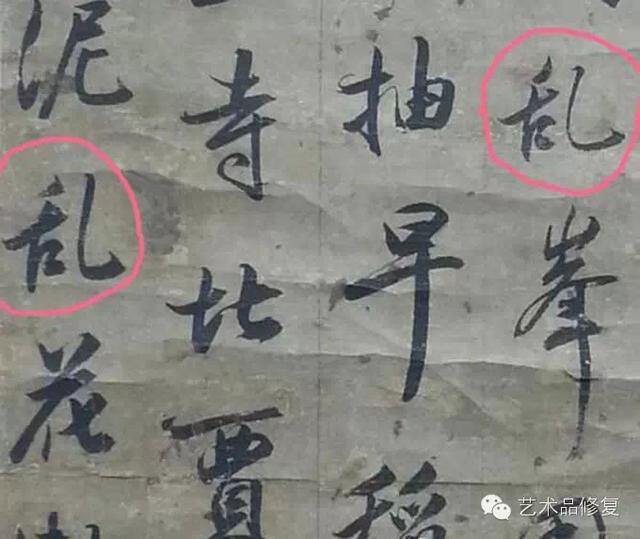 乱峯
抽早稻
寺北賈
泥乱花
艺术品修复